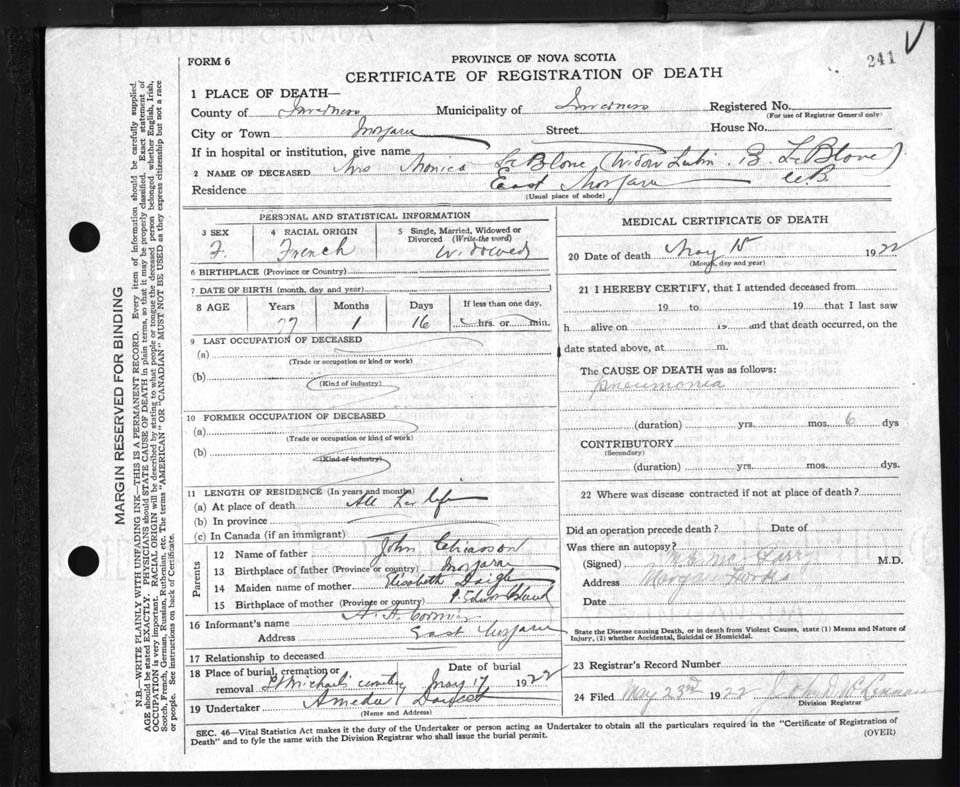 241
FORM 6
PROVINCE OF NOVA SCOTIA
CERTIFICATE OF REGISTRATION OF DEATH
1 PLACE OF DEATH—
County of Inverness Municipality of Inverness Registered No.
(For use of Registrar General only)
City or Town Margaree Street House No.
If in hospital or institution, give name
2 NAME OF DECEASED Mrs Monica Le Blone (Widow Lubin B. Le Blone)
Residence East Margaree C.B.
(Usual place of abode)
PERSONAL AND STATISTICAL INFORMATION
3 SEX
F.
4 RACIAL ORIGIN
French
5 Single, Married, Widowed or Divorced (Write the word)
Widowed
6 BIRTHPLACE (Province or Country)
7 DATE OF BIRTH (month, day and year)
8 AGE Years Months Days If less than one day,
77 1 16 hrs. or min.
9 LAST OCCUPATION OF DECEASED
(a)
(Trade or occupation or kind or work)
(b)
(Kind of industry)
10 FORMER OCCUPATION OF DECEASED
(a)
(Trade or occupation or kind of work)
(b)
(Kind of industry)
11 LENGTH OF RESIDENCE (In years and months)
(a) At place of death All her life
(b) In province
(c) In Canada (if an immigrant)
Parents
12 Name of father John Chiasson
13 Birthplace of father (Province or country) Margaree
14 Maiden name of mother Elisabeth Daigle
15 Birthplace of mother (Province or country) P. Edward Island
16 Informant's name A. A. Cormier
Address East Margaree
17 Relationship to deceased
18 Place of burial, cremation or removal St Michaels cemetery Date of burial May 17 1922
19 Undertaker Amedee
(Name and Address)
MEDICAL CERTIFICATE OF DEATH
20 Date of death May 15 1922
(Month, day and year)
21 I HEREBY CERTIFY, that I attended deceased from
19 to 19 that I last saw
h alive on 19 and that death occurred, on the
date stated above, at m.
The CAUSE OF DEATH was as follows:
Pneumonia
(duration) yrs. mos. 6 dys
CONTRIBUTORY
(Secondary)
(duration) yrs. mos. dys.
22 Where was disease contracted if not at place of death?
Did an operation precede death? Date of
Was there an autopsy?
(Signed) M.D.
Address Margaree Forks
Date
State the Disease causing Death, or in death from Violent Causes, state (1) Means and Nature of
Injury, (2) whether Accidental, Suicidal or Homicidal.
23 Registrar's Record Number
24 Filed May 23rd 1922 John D McLennan
Division Registrar
SEC. 46—Vital Statistics Act makes it the duty of the Undertaker or person acting as Undertaker to obtain all the particulars required in the "Certificate of Registration of
Death" and to fyle the same with the Division Registrar who shall issue the burial permit.
(OVER)
MARGIN RESERVED FOR BINDING
N.B.—WRITE PLAINLY WITH UNFADING INK—THIS IS A PERMANENT RECORD. Every item of information should be carefully supplied.
AGE should be stated EXACTLY. PHYSICIANS should STATE CAUSE OF DEATH in plain terms, so that it may be properly classified. Exact statement of
OCCUPATION is very important. RACIAL ORIGIN will be described by stating to what people or tongue the deceased person belonged whether English, Irish,
Scotch, French, German, Russian, Ruthenian, etc. The terms "AMERICAN" OR "CANADIAN" MUST NOT BE USED as they express citizenship but not a race
or people. See instructions on back of Certificate.